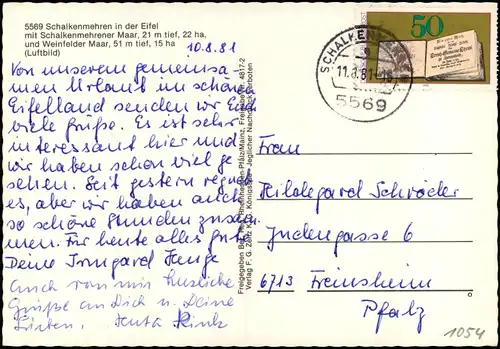 5569 Schalkenmehren in der Eifel
mit Schalkenmehrener Maar, 21 m tief, 22 ha,
und Weinfelder Maar, 51 m tief, 15 ha
(Luftbild)
10.8.81
Von unserem gemeinsa-
men Urlaub im schönen
Eifelland senden wir Euch
viele Grüße. Es ist sehr
interessant hier und
wir haben schon viel ge-
sehen. Seit gestern regnet
es, aber wir haben auch
so schöne Stunden zusam-
men. Für heute alles Gute
Deine Irmgard
auch von mir herzliche
Grüße an Dich u. Deine
Freigegeben Bez.-Reg. Rheinhessen-Pfalz/Mainz, Freigabe-Nr. 4817-2
Verlag F. G. Zeitz K.G. Königssee. Jeglicher Nachdruck verboten
SCHALKENMEHREN
11.8.81
5569
50
Frau
Hildegard Schröder
Judengasse 6
6713 Freinsheim
Pfalz
1054